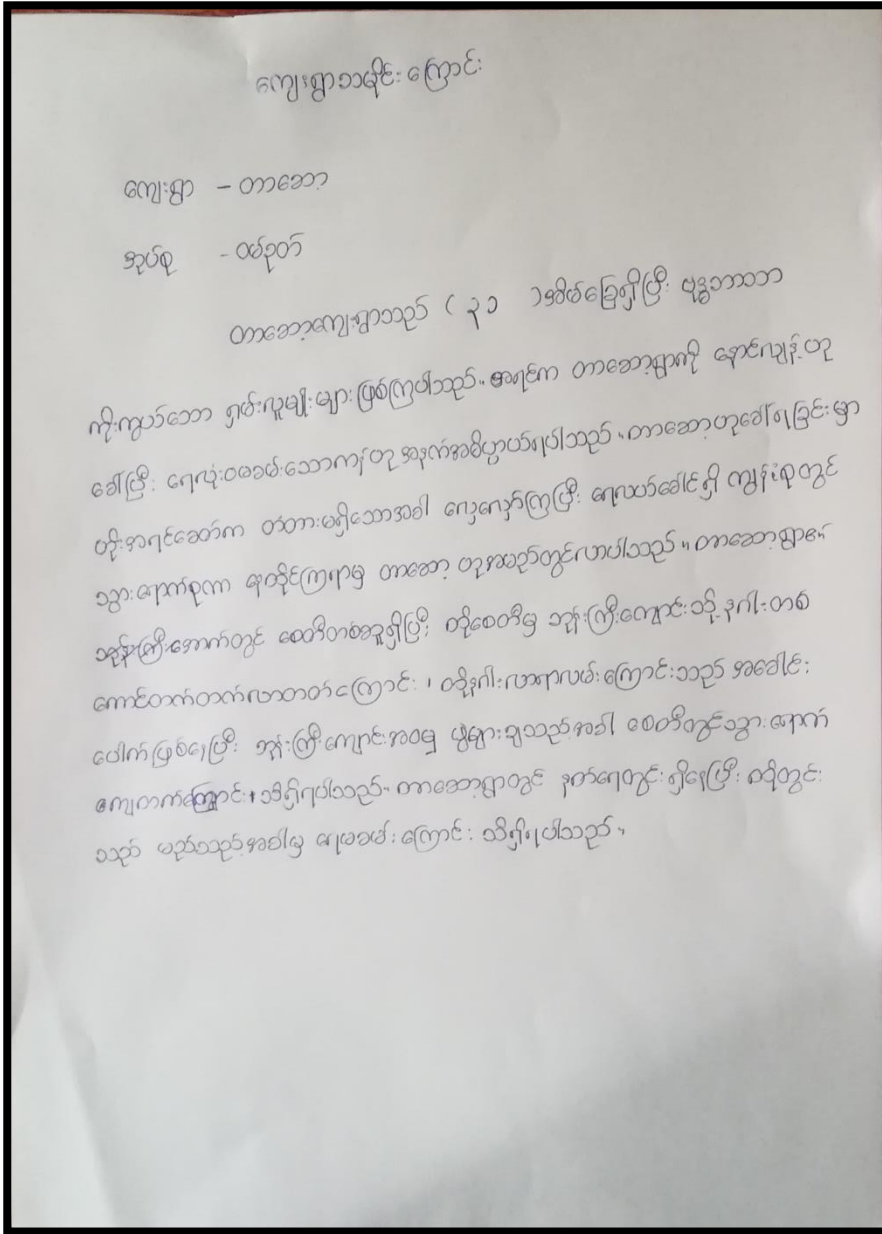 ကျေးရွာသမိုင်းကြောင်း
ကျေးရွာ - တာဆော့
အုပ်စု - ဝမ်ဥတ်
တာဆော့ကျေးရွာသည် ( ၃၁ ) အိမ်ခြေရှိပြီး ဗုဒ္ဓဘာသာ
ကိုးကွယ်သော ရှမ်းလူမျိုးများ ဖြစ်ကြပါသည်။ အရင်က တာဆော့ရွာကို နောင်လျှန့်ဟု
ခေါ်ပြီး ရေလုံးဝမခမ်းသောကန်ဟု အနက်အဓိပ္ပာယ်ရပါသည်။ တာဆော့ဟုခေါ်ရခြင်းမှာ
ဟိုးအရင်ခေတ်က တံတားမရှိသောအခါ လှေလှော်ကြပြီး ရေလယ်ခေါင်ရှိ ကျွန်းစုတွင်
သွားရောက်စုကာ နေထိုင်ကြရာမှ တာဆော့ ဟုအမည်တွင်လာပါသည်။ တာဆော့ရွာ၏
ဘုန်းကြီးအောက်တွင် စေတီတစ်ဆူရှိပြီး ထိုစေတီမှ ဘုန်းကြီးကျောင်းသို့ နဂါးတစ်
ကောင်တက်တက်လာတတ်ကြောင်း ၊ ထိုနဂါးလာရာလမ်းကြောင်းသည် အခေါင်း
ပေါက်ဖြစ်နေပြီး ဘုန်းကြီးကျောင်းအဝမှ ပွဲများချသည့်အခါ စေတီတွင်သွားရောက်
ကျတက်ကြောင်း ၊ သိရှိရပါသည်။ တာဆော့ရွာတွင် နတ်ရေတွင်းရှိနေပြီး ၎င်းတွင်း
သည် မည်သည့်အခါမှ ရေမခမ်းကြောင်း သိရှိရပါသည်။